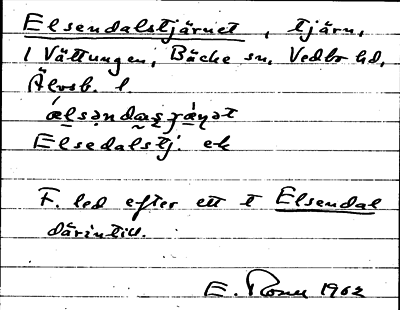 Elsendalstjärnet, tjärn,
i Vättungen, Bäcke sn, Vedbo hd,
Älvsb. l.
Elsedalstj. ek
F. led efter ett t Elsendal
därintill.
E. 1962